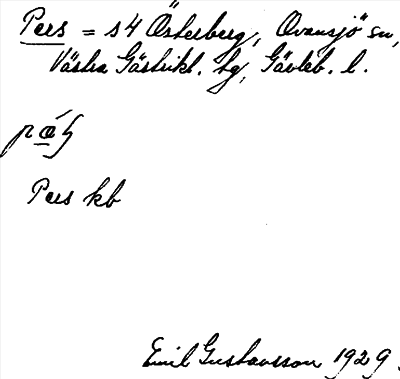 Pers = s4 Österberg, Ovansjö sn,
Västra Gästrikl. tg, Gävleb. l.
Pers kb
Emil Gustavsson 1929.